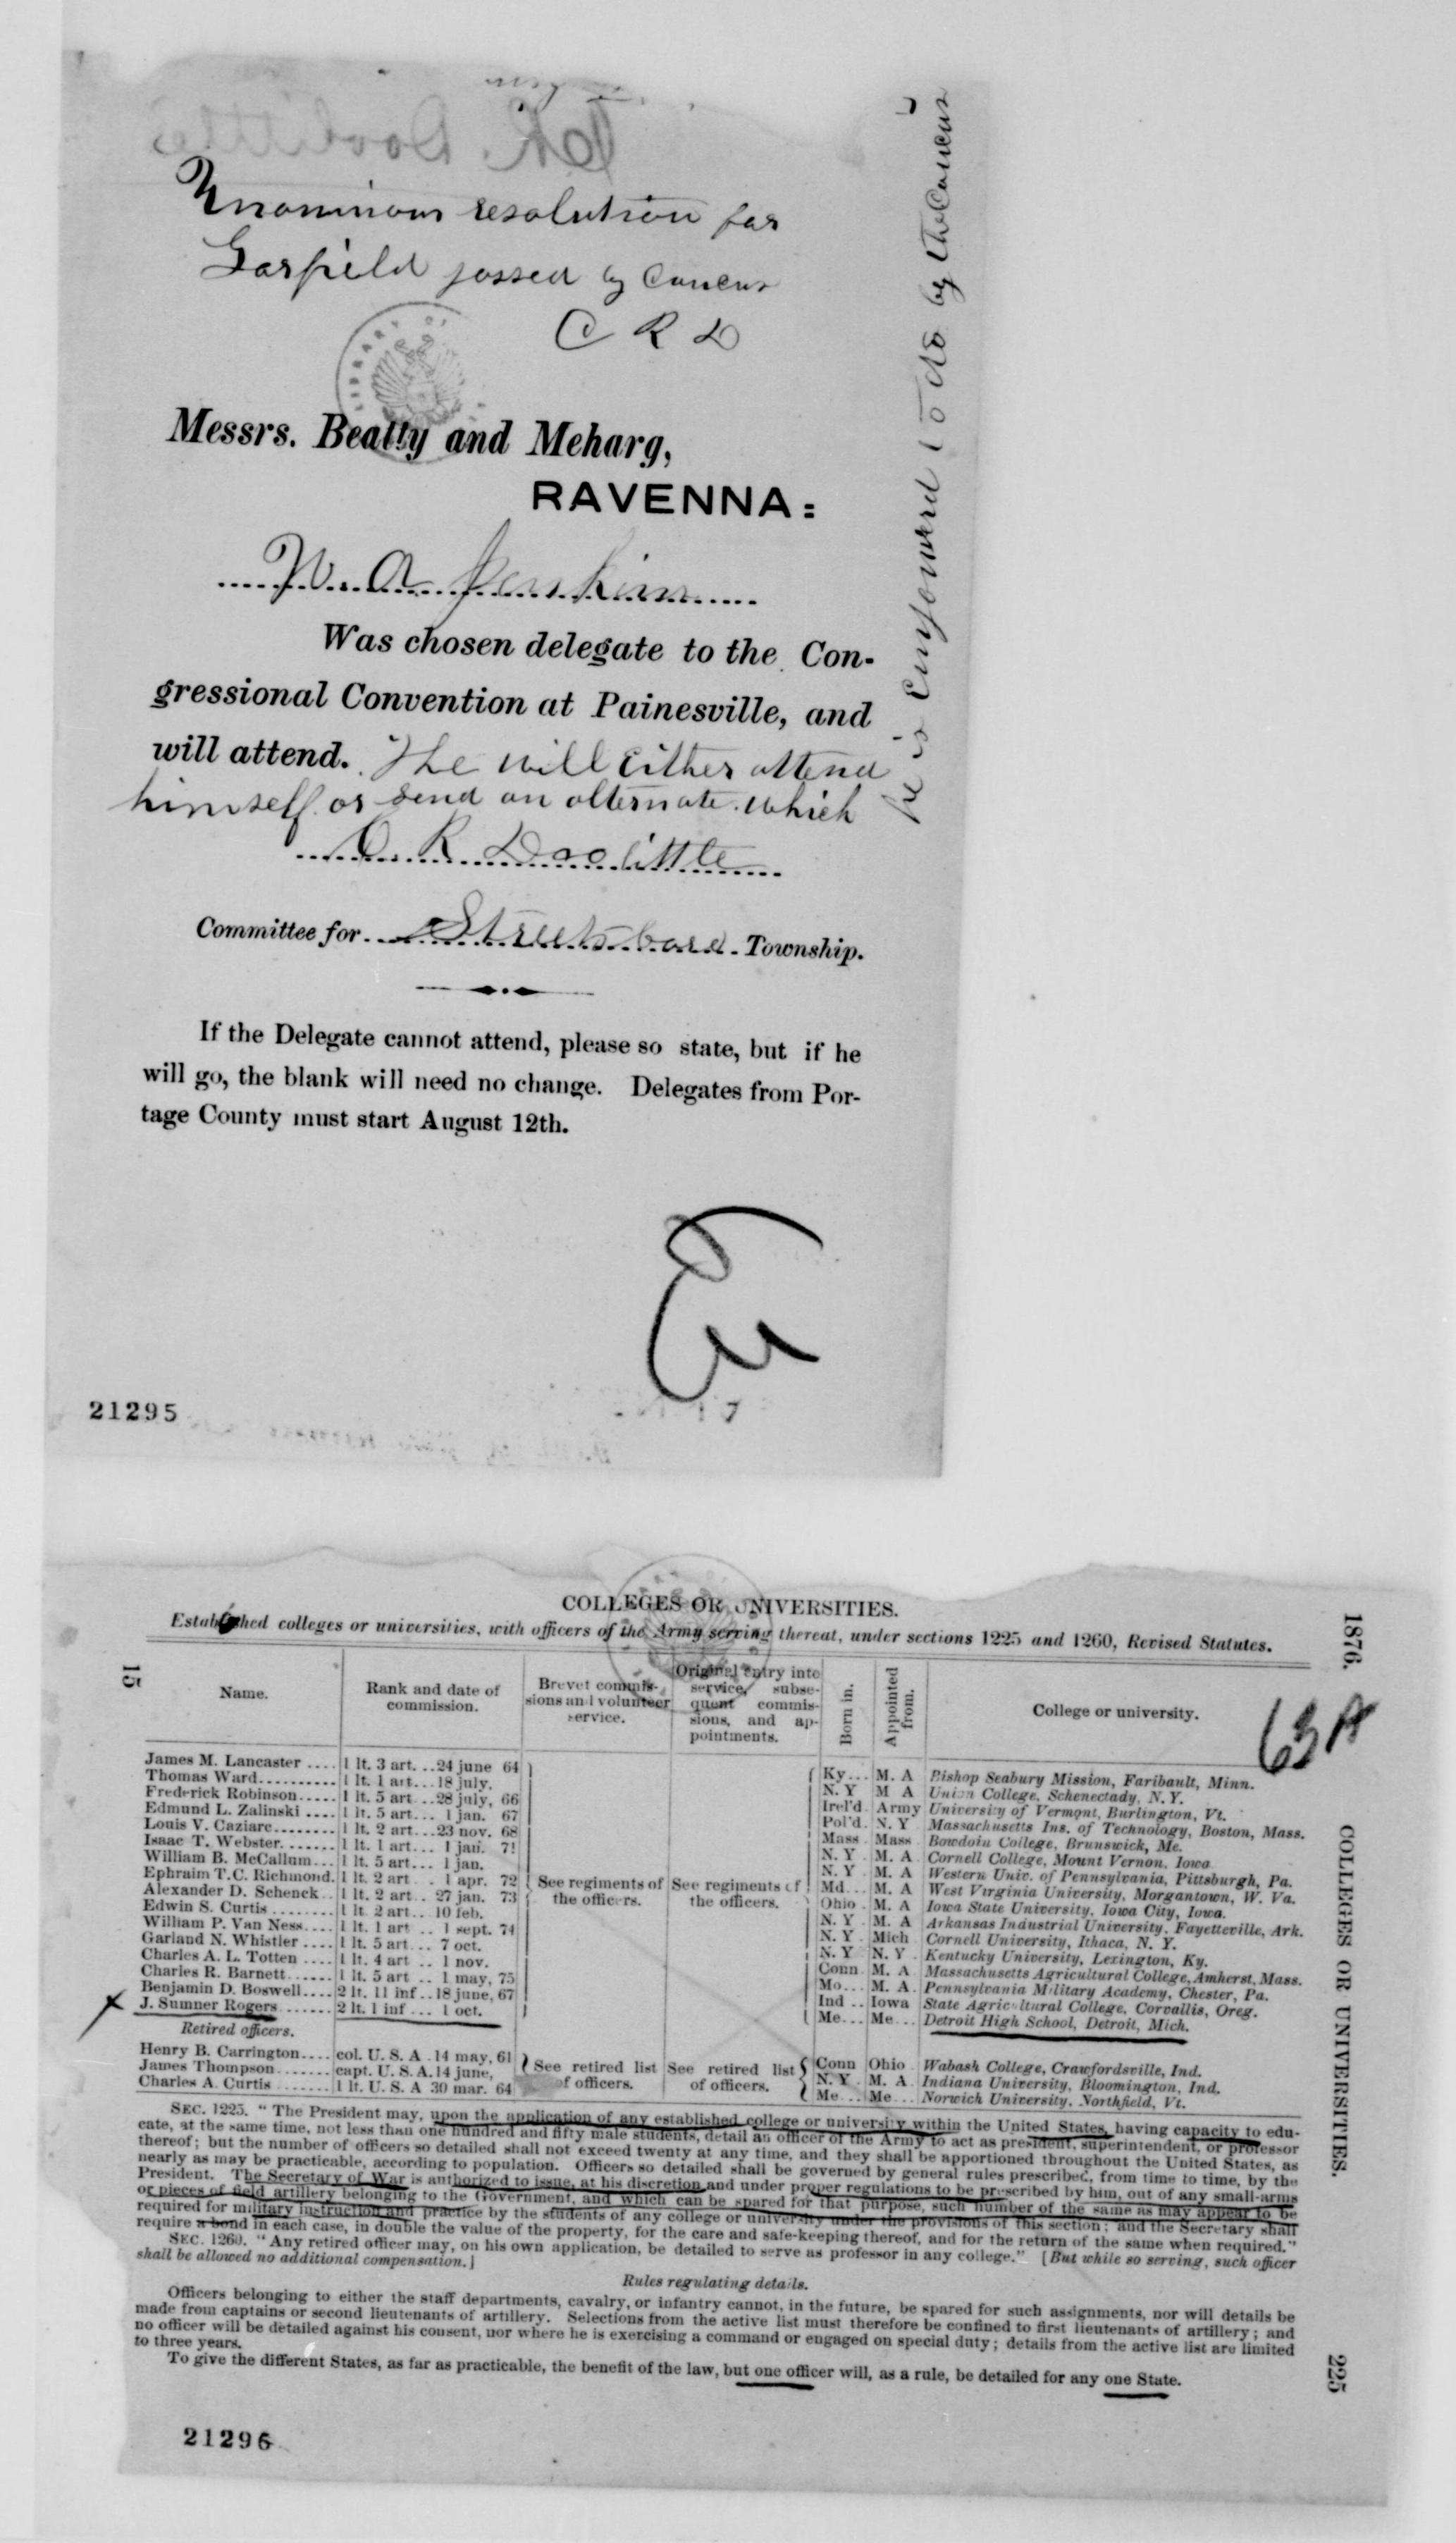 Unanimous resolution for
Garfield passed by Caucus
C R D
Messrs. Beatty and Meharg,
RAVENNA:
W. A. Jenkins
Was chosen delegate to the Con-
gressional Convention at Painesville, and
will attend. He will either attend
himself or send an alternate which
he is empowered to do by the Caucus
C R Doolittle
Committee for Streetsboro Township.
If the Delegate cannot attend, please so state, but if he
will go, the blank will need no change. Delegates from Por-
tage County must start August 12th.
21295
COLLEGES OR UNIVERSITIES.
Established colleges or universities, with officers of the Army serving thereat, under sections 1225 and 1260, Revised Statutes.
15
1876.
63A
COLLEGES OR UNIVERSITIES.
225
Name. Rank and date of commission. Brevet commissions and volunteer service. Original entry into service, subsequent commissions, and appointments. Born in. Appointed from. College or university.
James M. Lancaster .... 1 lt. 3 art. .. 24 june 64 Ky... M. A Bishop Seabury Mission, Faribault, Minn.
Thomas Ward.......... 1 lt. 1 art... 18 july. N. Y M A Union College, Schenectady, N. Y.
Frederick Robinson..... 1 lt. 5 art ...28 july, 66 Irel'd. Army University of Vermont, Burlington, Vt.
Edmund L. Zalinski .... 1 lt. 5 art... 1 jan. 67 Pol'd. N. Y Massachusetts Ins. of Technology, Boston, Mass.
Louis V. Caziarc........ 1 lt. 2 art...23 nov. 68 Mass Mass Bowdoin College, Brunswick, Me.
Isaac T. Webster....... 1 lt. 1 art... 1 jan. 71 N. Y M. A Cornell College, Mount Vernon, Iowa
William B. McCallum... 1 lt. 5 art... 1 jan. N. Y M. A Western Univ. of Pennsylvania, Pittsburgh, Pa.
Ephraim T.C. Richmond. 1 lt. 2 art .. 1 apr. 72 Md... M. A West Virginia University, Morgantown, W. Va.
Alexander D. Schenck.. 1 lt. 2 art.. 27 jan. 73 Ohio . M. A Iowa State University, Iowa City, Iowa.
Edwin S. Curtis ........ 1 lt. 2 art.. 10 feb. N. Y . M. A Arkansas Industrial University, Fayetteville, Ark.
William P. Van Ness.... 1 lt. 1 art .. 1 sept. 74 N. Y . Mich Cornell University, Ithaca, N. Y.
Garland N. Whistler .... 1 lt. 5 art... 7 oct. N. Y N. Y . Kentucky University, Lexington, Ky.
Charles A. L. Totten .... 1 lt. 4 art .. 1 nov. Conn M. A Massachusetts Agricultural College, Amherst, Mass.
Charles R. Barnett...... 1 lt. 5 art .. 1 may, 75 Mo... M. A. Pennsylvania Military Academy, Chester, Pa.
Benjamin D. Boswell.... 2 lt. 11 inf..18 june, 67 Ind .. Iowa State Agricultural College, Corvallis, Oreg.
J. Sumner Rogers....... 2 lt. 1 inf ... 1 oct. Me... Me... Detroit High School, Detroit, Mich.
See regiments of the officers. See regiments of the officers.
Retired officers.
Henry B. Carrington.... col. U. S. A .14 may, 61 Conn Ohio Wabash College, Crawfordsville, Ind.
James Thompson....... capt. U. S. A. 14 june, N. Y . M. A. Indiana University, Bloomington, Ind.
Charles A. Curtis ....... 1 lt. U. S. A 30 mar. 64 Me... Me... Norwich University, Northfield, Vt.
See retired list of officers. See retired list of officers.
SEC. 1225. "The President may, upon the application of any established college or university within the United States, having capacity to edu-
cate, at the same time, not less than one hundred and fifty male students, detail an officer of the Army to act as president, superintendent, or professor
thereof; but the number of officers so detailed shall not exceed twenty at any time, and they shall be apportioned throughout the United States, as
nearly as may be practicable, according to population. Officers so detailed shall be governed by general rules prescribed, from time to time, by the
President. The Secretary of War is authorized to issue, at his discretion and under proper regulations to be prescribed by him, out of any small-arms
or pieces of field artillery belonging to the Government, and which can be spared for that purpose, such number of the same as may appear to be
required for military instruction and practice by the students of any college or university under the provisions of this section; and the Secretary shall
require a bond in each case, in double the value of the property, for the care and safe-keeping thereof, and for the return of the same when required."
SEC. 1260. "Any retired officer may, on his own application, be detailed to serve as professor in any college." [But while so serving, such officer
shall be allowed no additional compensation.]
Rules regulating details.
Officers belonging to either the staff departments, cavalry, or infantry cannot, in the future, be spared for such assignments, nor will details be
made from captains or second lieutenants of artillery. Selections from the active list must therefore be confined to first lieutenants of artillery; and
no officer will be detailed against his consent, nor where he is exercising a command or engaged on special duty; details from the active list are limited
to three years.
To give the different States, as far as practicable, the benefit of the law, but one officer will, as a rule, be detailed for any one State.
21296